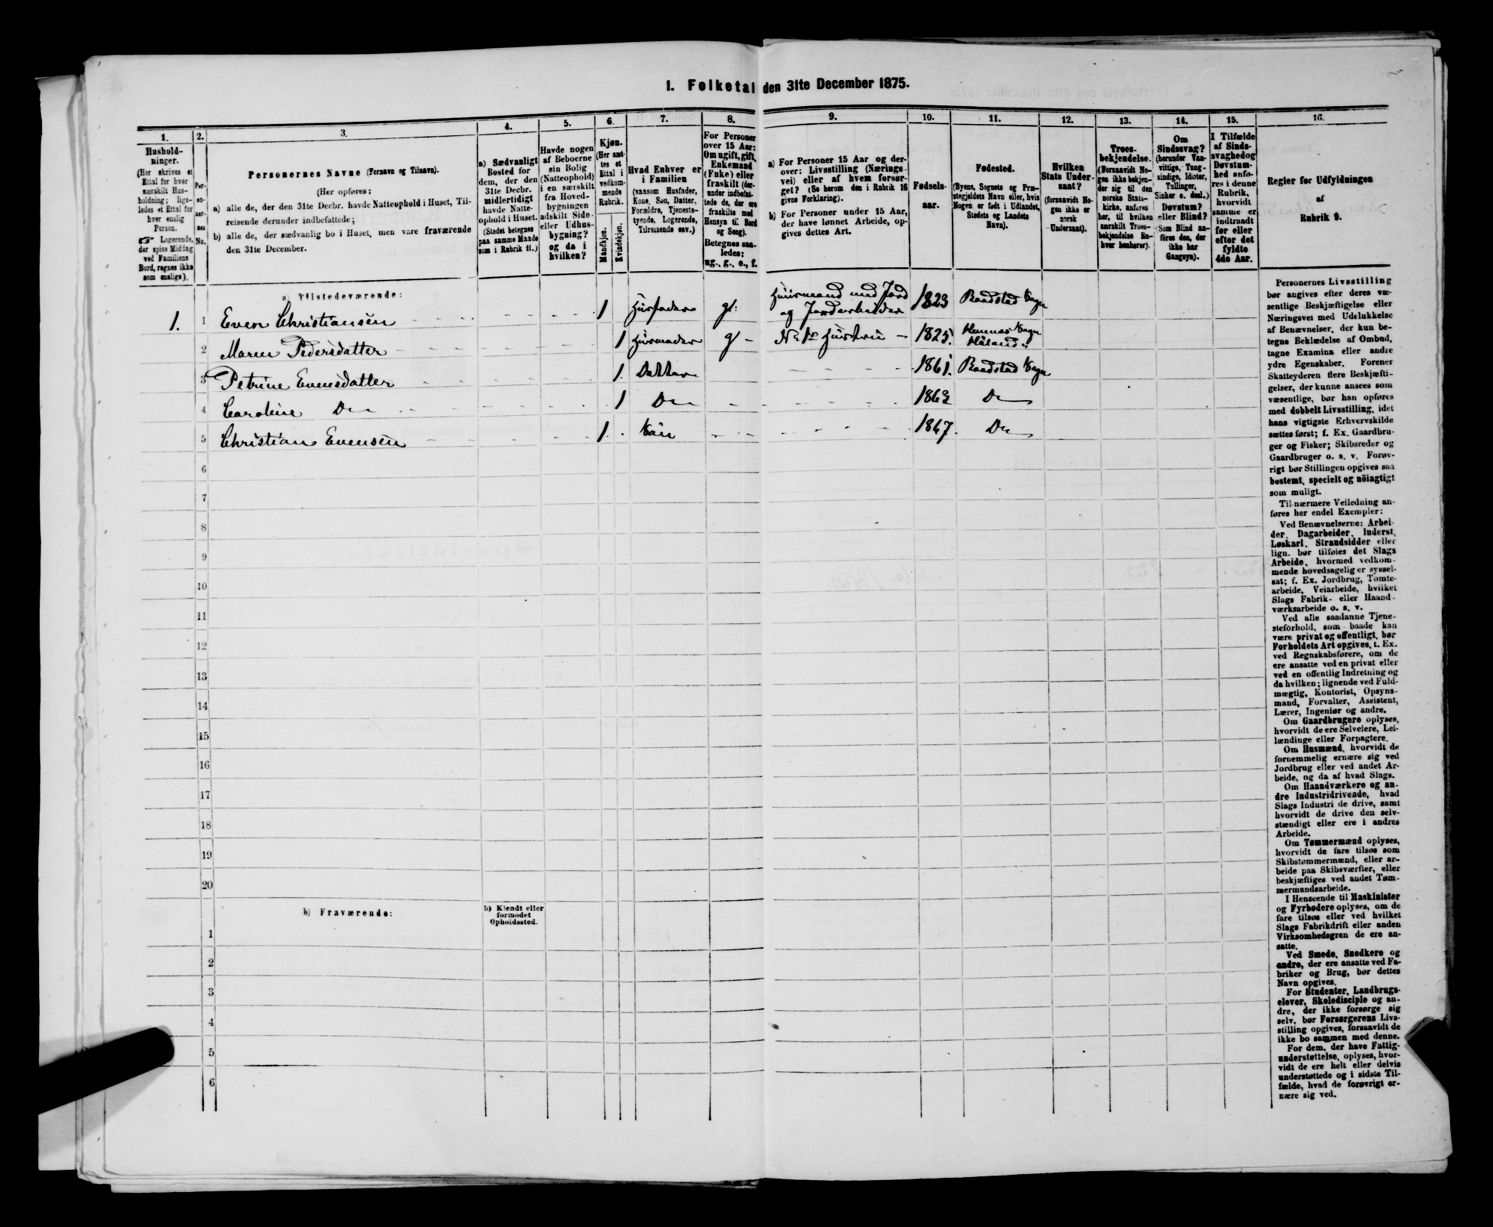 1. Folketal den 31te December 1875.
1. 2. 3. 4. 5. 6. 7. 8. 9. 10. 11. 12. 13. 14. 15. 16.
Hushold-
ninger.
(Her skrives et
Ettal for hver
særskilt Hus-
holdning; lige-
ledes et Ettal for
hver enslig
Person.
☞ Logerende,
der spise Middag
ved Familiens
Bord, regnes ikke
som enslige).
Per-
so-
ner-
nes
No.
Personernes Navne (Fornavn og Tilnavn).
(Her opføres:
a) alle de, der den 31te Decbr. havde Natteophold i Huset, Til-
reisende derunder indbefattede;
b) alle de, der sædvanlig bo i Huset, men vare fraværende
den 31te December.
a) Sædvanligt
Bosted for
dem, der den
31te Decbr.
midlertidigt
havde Natte-
ophold i Huset.
(Stedet betegnes
paa samme Maade
som i Rubrik 11.)
Havde nogen
af Beboerne
sin Bolig
(Natteophold)
i en særskilt
fra Hoved-
bygningen
adskilt Side-
eller Udhus-
bygning?
og da i
hvilken?
Kjøn.
(Her sæt-
tes et
Ettal i
vedkom-
mende
Rubrik.
Mandkjøn.
Kvindekjøn.
Hvad Enhver er
i Familien
(saasom Husfader,
Kone, Søn, Datter,
Forældre, Tjeneste-
tyende, Logerende,
Tilreisende osv.)
For Personer
over 15 Aar:
Om ugift, gift,
Enkemand
(Enke) eller
fraskilt (der-
under indbefat-
tede de, der ere
fraskilte med
Hensyn til Bord
og Seng).
Betegnes saa-
ledes:
ug., g., e., f.
a) For Personer 15 Aar og der-
over: Livsstilling (Nærings-
vei) eller af hvem forsør-
get? (Se herom den i Rubrik 16
givne Forklaring).
b) For Personer under 15 Aar,
der have lønnet Arbeide, op-
gives dettes Art.
Fødsels-
aar.
Fødested.
(Byens, Sognets og Præ-
stegjeldets Navn eller, hvis
Nogen er født i Udlandet,
Stedets og Landets
Navn).
Hvilken
Stats Under-
saat?
(forsaavidt No-
gen ikke er
norsk
Undersaat).
Troes-
bekjendelse.
(Forsaavidt No-
gen ikke bekjen-
der sig til den
norske Stats-
kirke, anføres
her, til hvilken
særskilt Troes-
bekjendelse En-
hver henhører).
Om
Sindssvag?
(herunder Van-
vittige, Tung-
sindige, Idioter,
Tullinger,
Sinker o. desl.)
Døvstum?
eller Blind?
(Som Blind an-
føres den, der
ikke har
Gangsyn).
I Tilfælde
af Sinds-
svaghed og
Døvstum-
hed anfø-
res i denne
Rubrik,
hvorvidt
samme er
indtraadt
før eller
efter det
fyldte
4de Aar.
Regler for Udfyldningen
af
Rubrik 9.
a) Tilstedeværende:
1. 1 Even Christiansen 1 Husfader g. Huusmand med Jord og Jordarbeider 1823 Raadstad Sogn
2 Maren Pedersdatter 1 Husmoder g 1825.
3 Petrine Evensdatter 1. Datter 1861. Raadstad Sogn
4 Caroline Do 1 Do 1863 Do
5 Christian Evensen 1. Søn 1867. Do
6
7
8
9
10
11
12
13
14
15
16
17
18
19
20
b) Fraværende:
b) Kjendt eller
formodet
Opholdssted.
1
2
3
4
5
6
Personernes Livsstilling
bør angives efter deres væ-
sentlige Beskjæftigelse eller
Næringsvei med Udelukkelse
af Benævnelser, der kun be-
tegne Beklædelse af Ombud,
tagne Examina eller andre
ydre Egenskaber. Forener
Skatteyderen flere Beskjæfti-
gelser, der kunne ansees som
væsentlige, bør han opføres
med dobbelt Livsstilling, idet
hans vigtigste Erhvervskilde
sættes først; f. Ex. Gaardbru-
ger og Fisker; Skibsreder og
Gaardbruger o. s. v. Forøv-
rigt bør Stillingen opgives saa
bestemt, specielt og nöiagtigt
som muligt.
Til nærmere Veiledning an-
føres her endel Exempler:
Ved Benævnelserne: Arbei-
der, Dagarbeider, Inderst,
Løskarl, Strandsidder eller
lign. bør tilføies det Slags
Arbeide, hvormed vedkom-
mende hovedsagelig er syssel-
sat; f. Ex. Jordbrug, Tomte-
arbeide, Veiarbeide, hvilket
Slags Fabrik- eller Haand-
værksarbeide o. s. v.
Ved alle saadanne Tjene-
steforhold, som baade kan
være privat og offentligt, bør
Forholdets Art opgives, t. Ex.
ved Regnskabsførere, om de
ere ansatte ved en privat eller
ved en offentlig Indretning og
da hvilken; lignende ved Fuld-
mægtig, Kontorist, Opsyns-
mand, Forvalter, Assistent,
Lærer, Ingeniør og andre.
Om Gaardbrugere oplyses,
hvorvidt de ere Selveiere, Lei-
lændinge eller Forpagtere.
Om Husmænd, hvorvidt de
fornemmelig ernære sig ved
Jordbrug eller ved andet Ar-
beide, og da af hvad Slags.
Om Haandværkere og an-
dre Industridrivende, hvad
Slags Industri de drive, samt
hvorvidt de drive den selv-
stændigt eller ere i andres
Arbeide.
Om Tømmermænd oplyses,
hvorvidt de fare tilsøs som
Skibstømmermænd, eller ar-
beide paa Skibsværfter, eller
beskjæftiges ved andet Tøm-
mermandsarbeide.
I Henseende til Maskinister
og Fyrbødere oplyses, om de
fare tilsøs eller ved hvilket
Slags Fabrikdrift eller anden
Virksomhedsgren de ere an-
satte.
Ved Smede, Snedkere og
andre, der ere ansatte ved Fa-
briker og Brug, bør dettes
Navn opgives.
For Studenter, Landbrugs-
elever, Skoledisciple og an-
dre, der ikke forsørge sig
selv, bør Forsørgerens Livs-
stilling opgives, forsaavidt de
ikke bo sammen med denne.
For dem, der have Fattig-
understøttelse, oplyses, hvor-
vidt de ere helt eller delvis
understøttede og i sidste Til-
fælde, hvad de forøvrigt er-
nære sig ved.